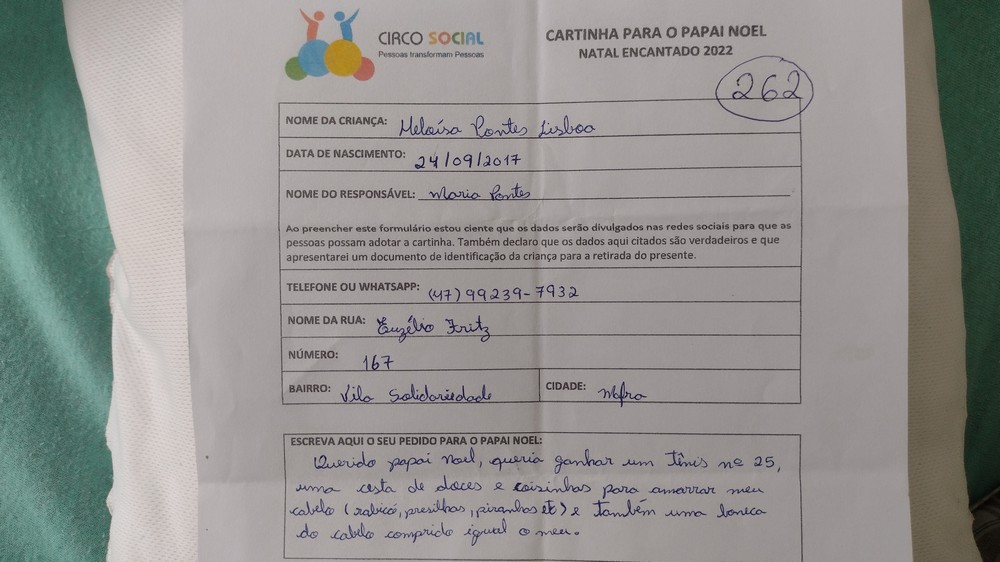 CIRCO SOCIAL
Pessoas transformam Pessoas
CARTINHA PARA O PAPAI NOEL
NATAL ENCANTADO 2022
262
NOME DA CRIANÇA: Heloísa Pontes Lisboa
DATA DE NASCIMENTO: 24/09/2017
NOME DO RESPONSÁVEL: Maria Pontes
Ao preencher este formulário estou ciente que os dados serão divulgados nas redes sociais para que as
pessoas possam adotar a cartinha. Também declaro que os dados aqui citados são verdadeiros e que
apresentarei um documento de identificação da criança para a retirada do presente.
TELEFONE OU WHATSAPP: (47) 99239-7932
NOME DA RUA: Euzélio Fritz
NÚMERO: 167
BAIRRO: Vila Solidariedade CIDADE: Mafra
ESCREVA AQUI O SEU PEDIDO PARA O PAPAI NOEL:
Querido papai noel, queria ganhar um tênis nº 25,
uma cesta de doces e coisinhas para amarrar meu
cabelo (rabicó, presilhas, piranhas etc) e também uma boneca
do cabelo comprido igual o meu.